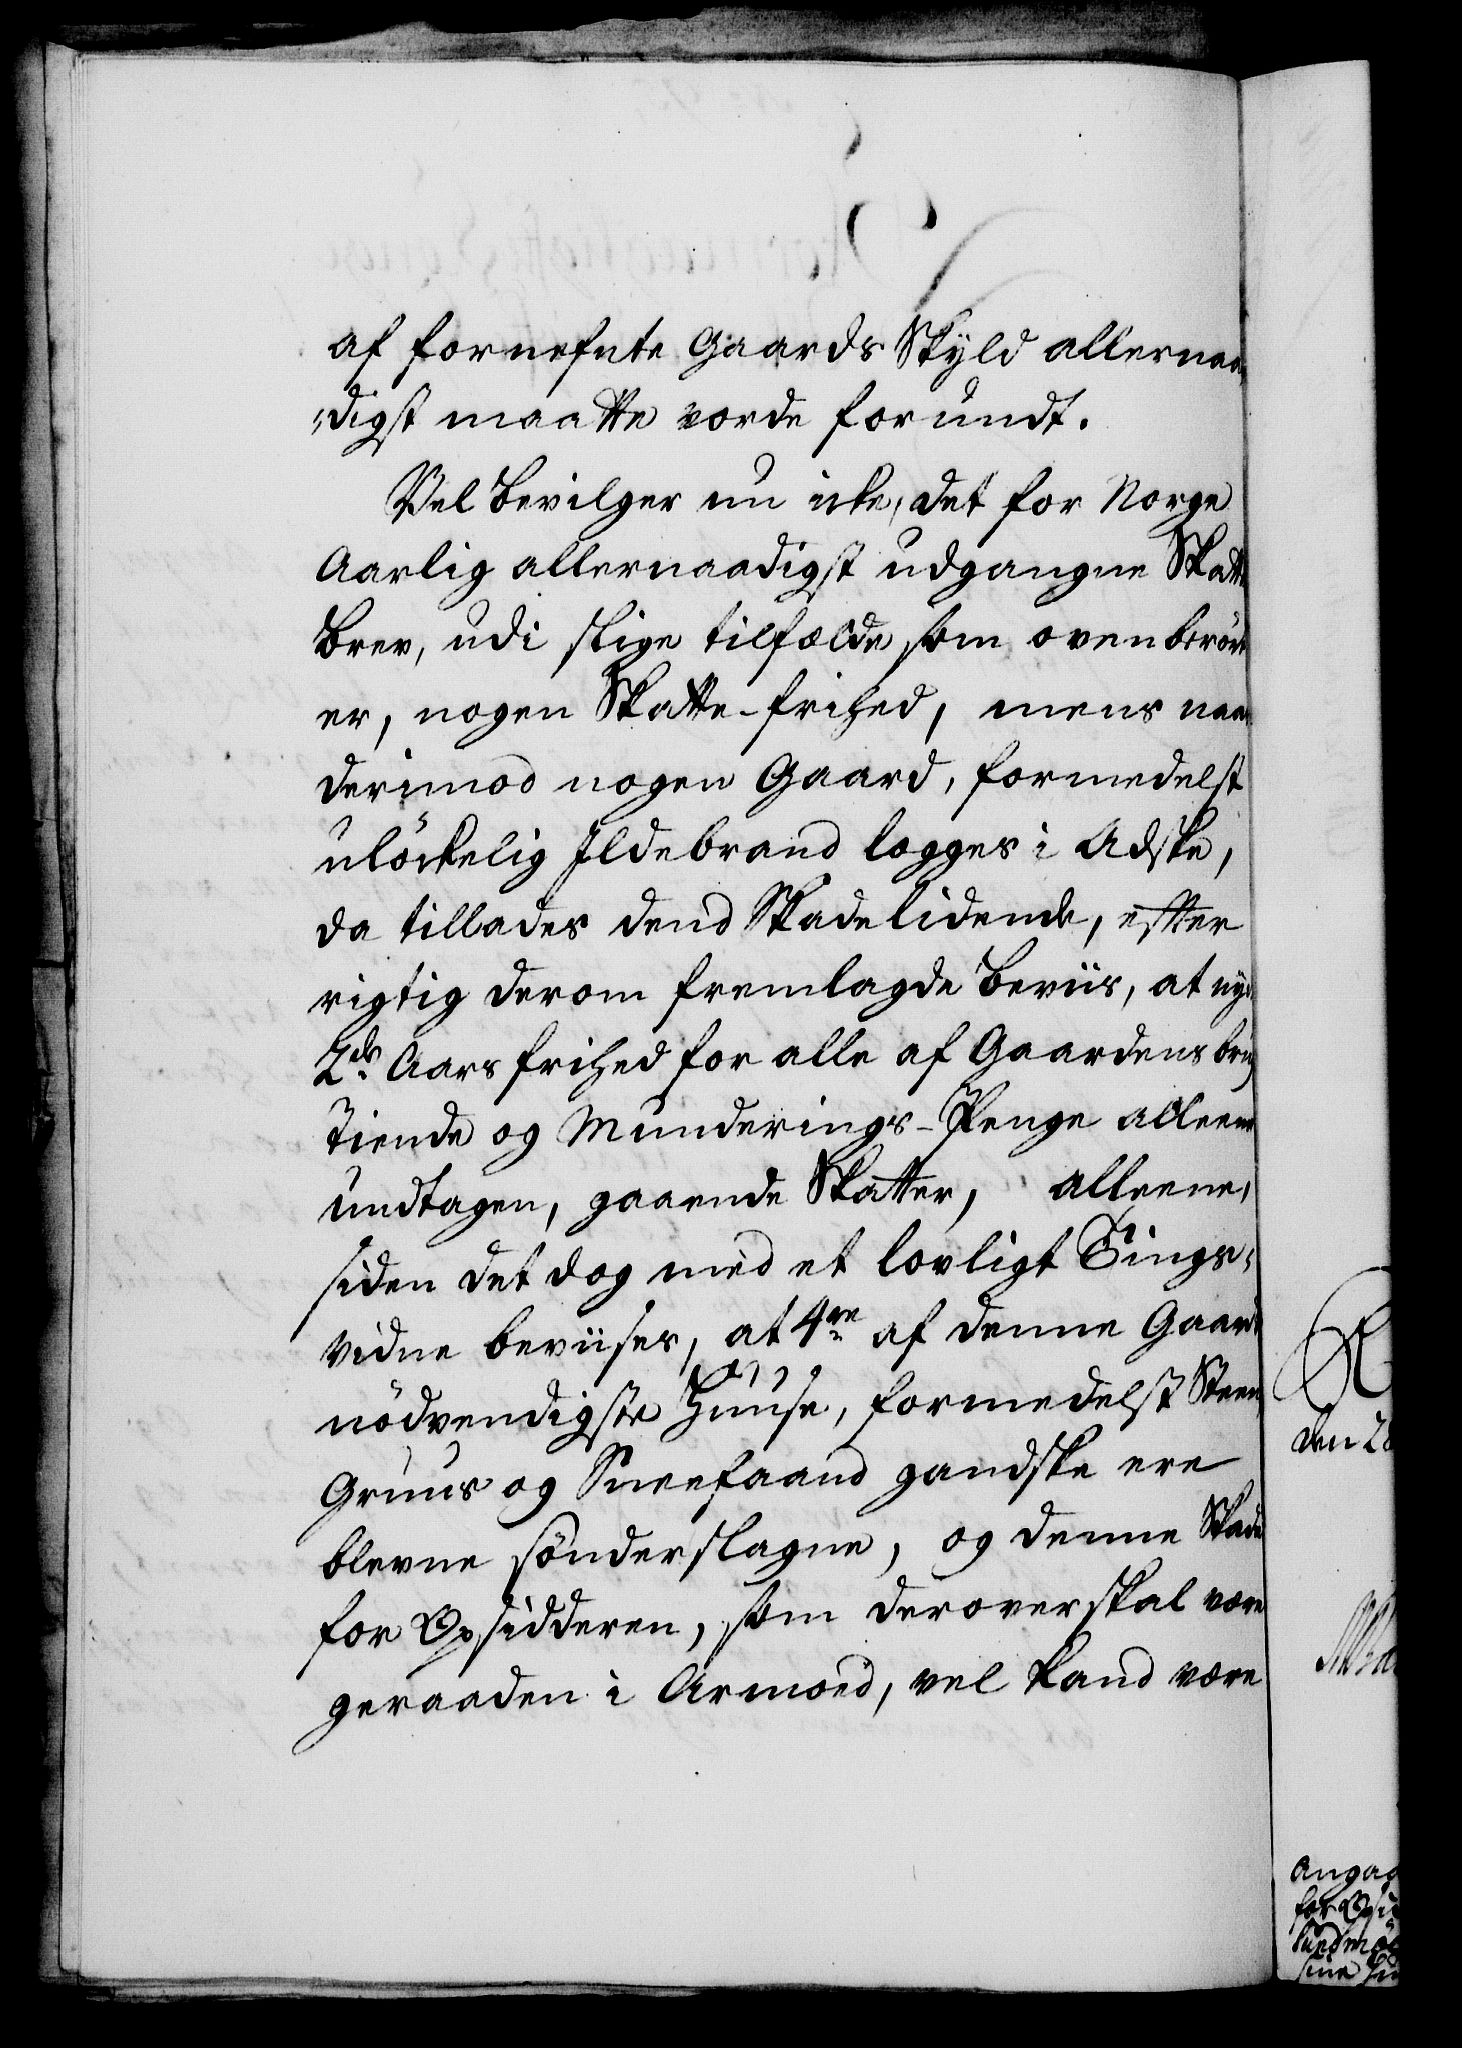 af fornefnte Gaards Skyld allernaa-
„digst maatte vorde forundt.
Vel bevilger nu icke, det for Norge
Aarlig allernaadigst udgangne Skatte
Brev, udi slige tilfælde som ovenberört
er, nogen Skatte-frihed, mens naar
derimod nogen Gaard, formedelst
ulöckelig Ildebrand legges i Adske,
da tillades dend Skadelidende, efter
rigtig derom fremlagde beviis, at nyde
2de Aars frihed for alle af Gaardens brug
Tiende og Munderings-Penge alleene
undtagen, gaaende Skatter, alleene,
siden det dog med et lovligt Tings-
vidne beviises, at 4re af denne Gaards
nödvendigste Huuse, formedelst Steen,
Gruus og Sneefaand gandske ere
blevne sönderslagne, og denne Skade
for Opsidderen, som derover skal være
geraaden i Armoed, vel kand være
den 28
Angaa
for Opsid
Sundmöe
sine Hu